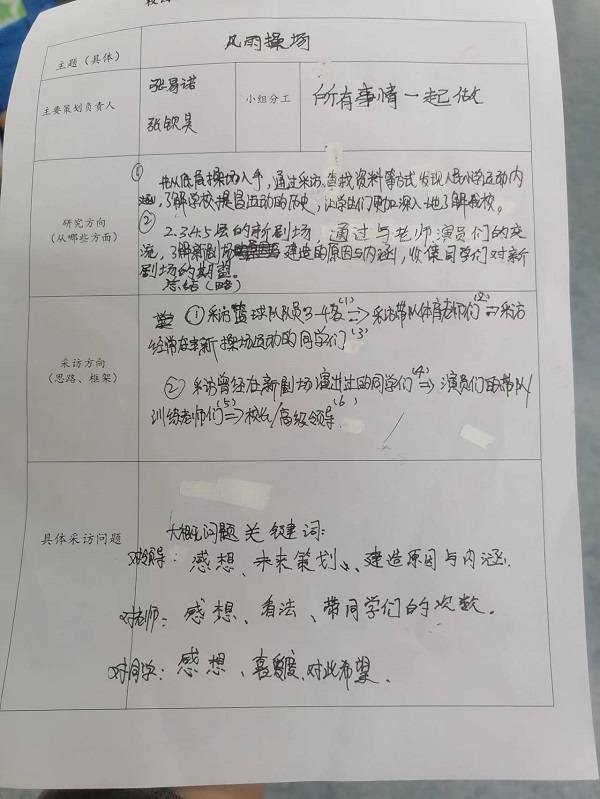 主题（具体）
风雨操场
主要策划负责人
张易诺
张钦昊
小组分工
所有事情一起做
研究方向
（从哪些方面）
① 先从低层操场入手，通过采访、查找资料等方式发现人民小学运动内
涵，了解学校提倡运动的历史，让学生们更加深入地了解我校。
② 2.3.4.5层的新剧场，通过与老师演员们的交
流，了解新剧场建造的原因与内涵，收集同学们对新
剧场的期望。
总结（略）
采访方向
（思路、框架）
① 采访篮球队队员3-4名(1)⇒采访带队体育老师们(2)⇒采访
经常在新操场运动的同学们(3)
② 采访曾经在新剧场演出过的同学们(4)⇒演员们的带队
训练老师们(5)⇒校长/高级领导(6)
具体采访问题
大概问题关键词：
对领导：感想、未来策划、建造原因与内涵.
对老师：感想、看法、带同学们的次数。
对同学：感想、喜爱度、对此希望.